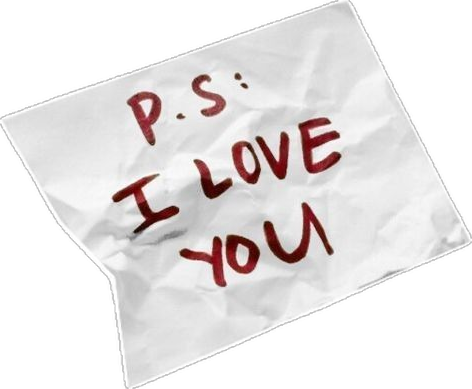 P.S:
I LOVE
YOU